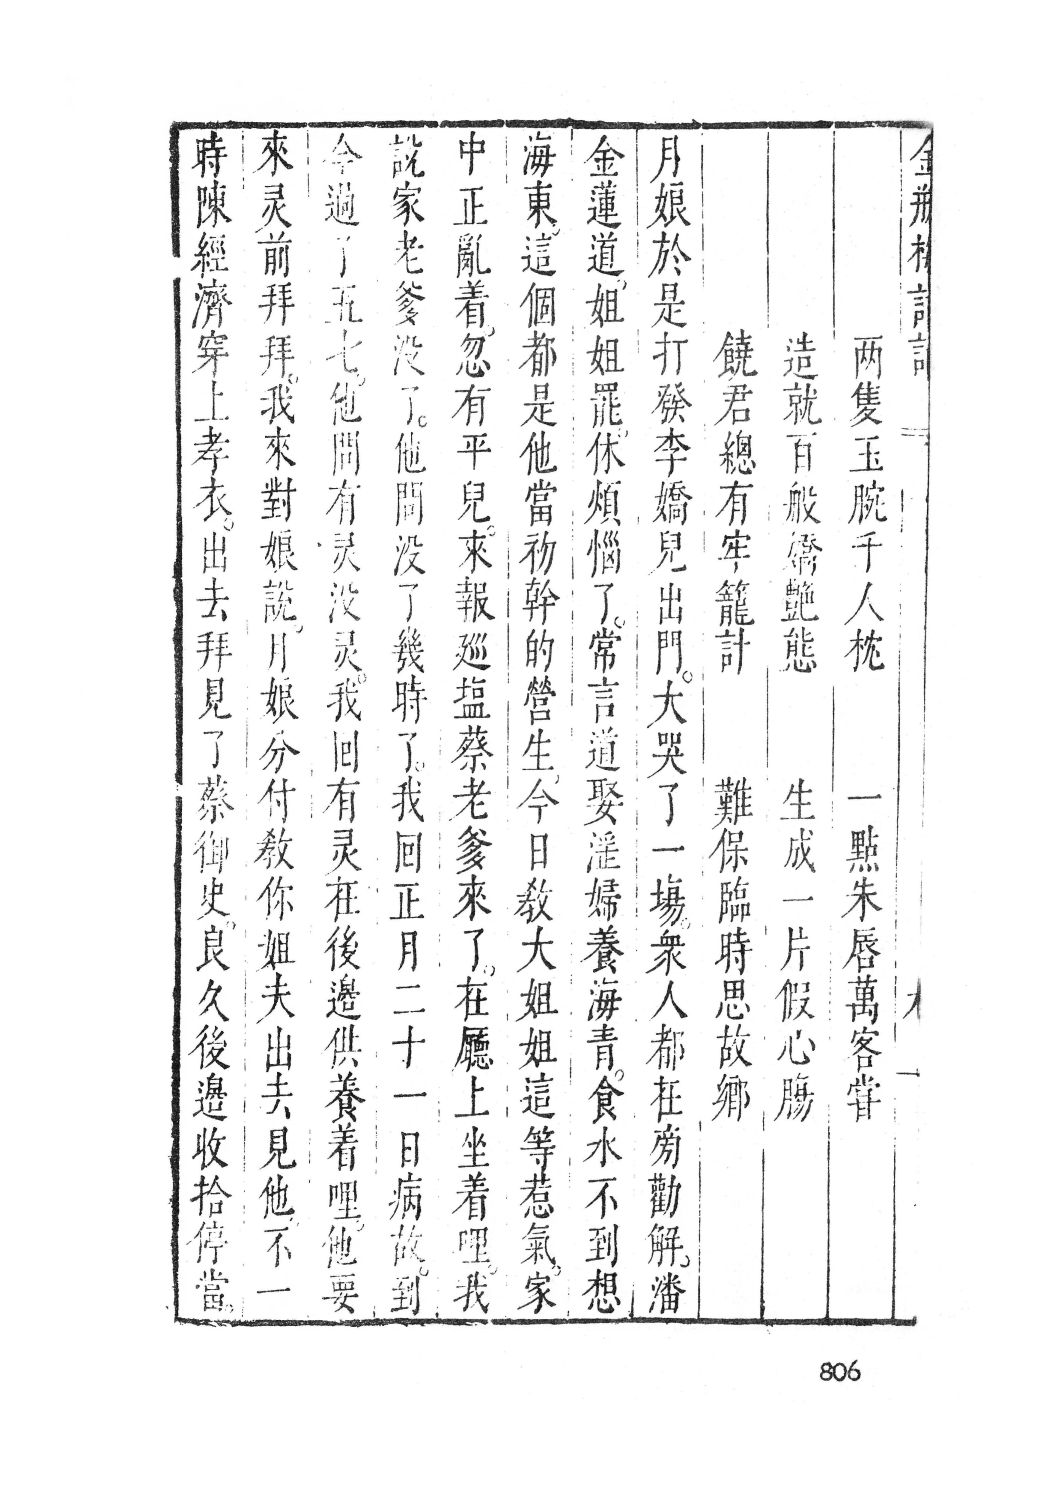 金瓶梅詞話
两隻玉腕千人枕　一點朱唇萬客甞
造就百般嬌艷態　生成一片假心膓
饒君總有牢籠計　難保臨時思故鄉
月娘於是打發李嬌兒出門。大哭了一塲。衆人都在旁勸解。潘
金蓮道。姐姐罷。休煩惱了。常言道娶淫婦養海青。食水不到想
海東。這個都是他當初幹的營生。今日教大姐姐這等惹氣。家
中正亂着。忽有平兒。來報廵塩蔡老爹來了。在廳上坐着哩。我
說家老爹没了。他問没了幾時了。我回正月二十一日病故。到
今過了五七。他問有灵没灵。我回有灵在後邊供養着哩。他要
來灵前拜拜。我來對娘說。月娘分付教你姐夫出去見他。不一
時陳經濟穿上孝衣。出去拜見了蔡御史。良久後邊收拾停當。
806